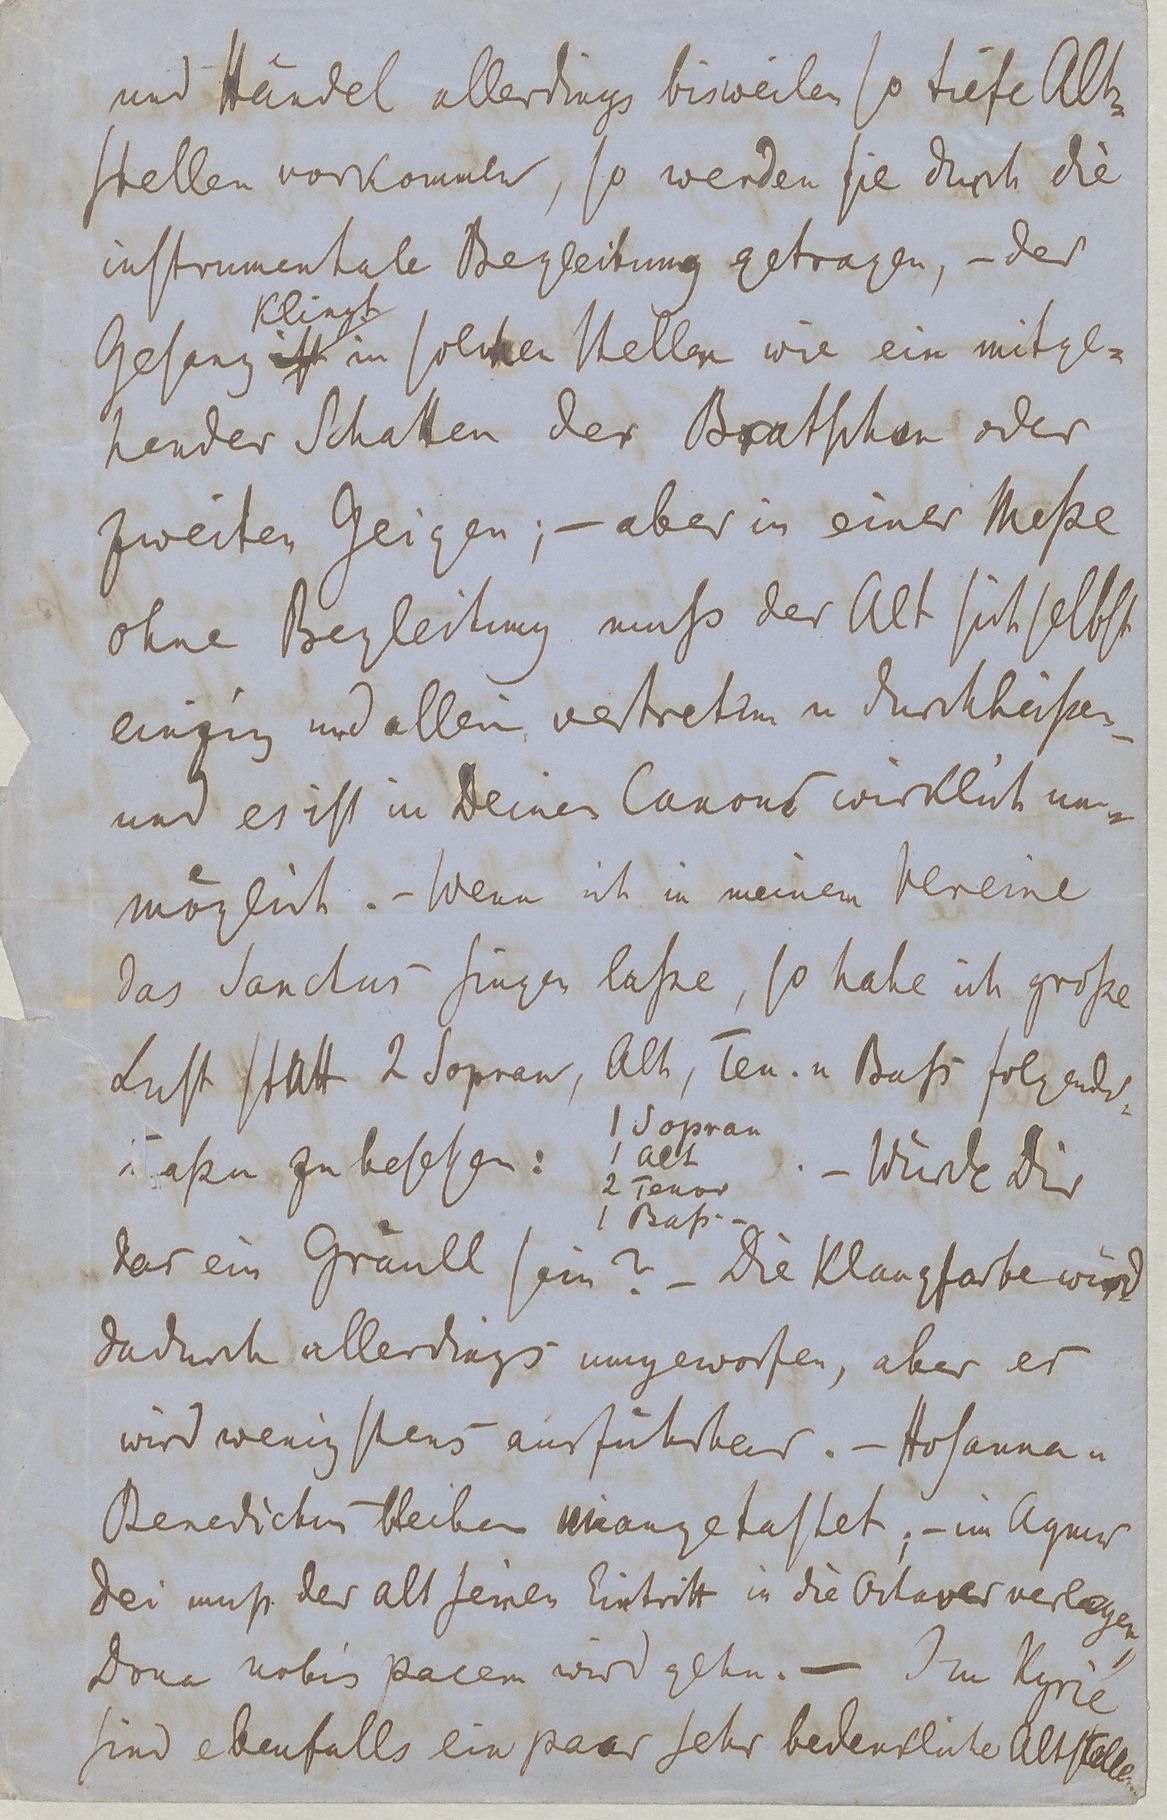 und Händel allerdings bisweilen so tiefe Alt=
stellen vorkommen, so werden sie durch die
instrumentale Begleitung getragen, – der
klingt
Gesang ist in solchen Stellen wie ein mitge=
hender Schatten der Bratschen oder
zweiten Geigen; – aber in einer Meße
ohne Begleitung muß der Alt sich selbst
einzig und allein vertreten u durchbeißen –
und es ist in Deinen Canons wirklich un=
möglich. – Wenn ich in meinem Vereine
das Sanctus singen laße, so habe ich große
Lust statt 2 Sopran, Alt, Ten. u Baß folgender=
maßen zu besetzen:
1 Sopran
1 Alt
2 Tenor
1 Baß. –
. – Würde Dir
das ein Gräuel sein? – Die Klangfarbe wird
dadurch allerdings umgeworfen, aber es
wird wenigstens ausführbar. – Hosanna u
Benedictus bleiben unangetastet; – im Agnus
Dei muß der Alt seinen Eintritt in die Octave verlegen,
Dona nobis pacem wird gehn. — Im Kyrie
sind ebenfalls ein paar sehr bedenkliche Altstellen